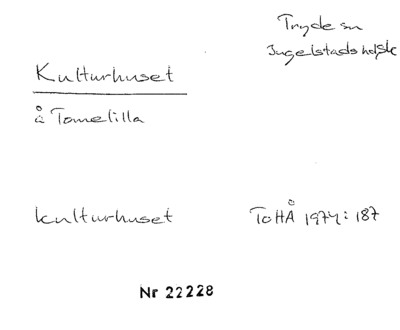 Tryde sn
Ingelstads hd, Sk
Kulturhuset
å Tomelilla
kulturhuset
ToHÅ 1974:187
Nr 22228